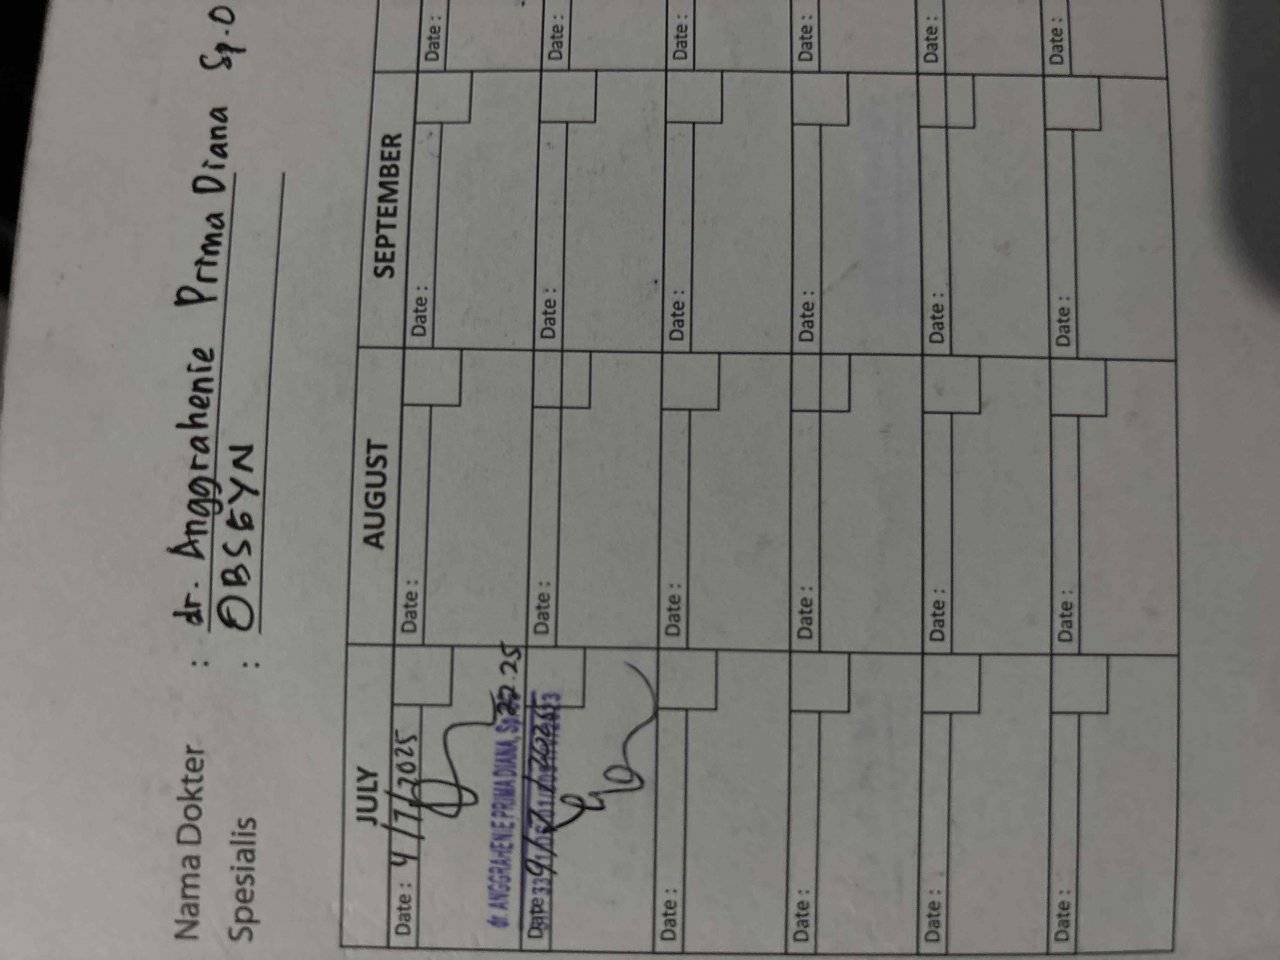 Nama Dokter : dr. Anggrahenie Prima Diana Sp.O
Spesialis : OBSGYN
JULY AUGUST SEPTEMBER
Date : 4/7/2025 Date : Date : Date :
dr. ANGGRAHENIE PRIMA DIANA, Sp
Date Date : Date : Date :
Date : Date : Date : Date :
Date : Date : Date : Date :
Date : Date : Date : Date :
Date : Date : Date : Date :